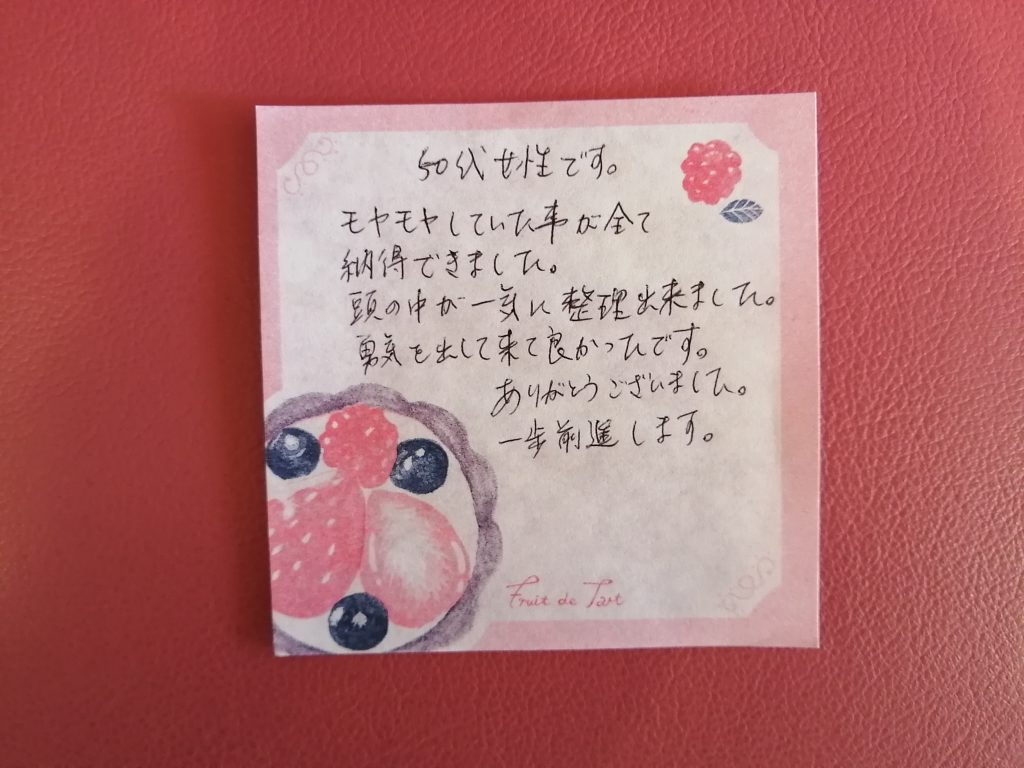 50代女性です。
モヤモヤしていた事が全て
納得できました。
頭の中が一気に整理出来ました。
勇気を出して来て良かったです。
ありがとうございました。
一歩前進します。
Fruit de Tart